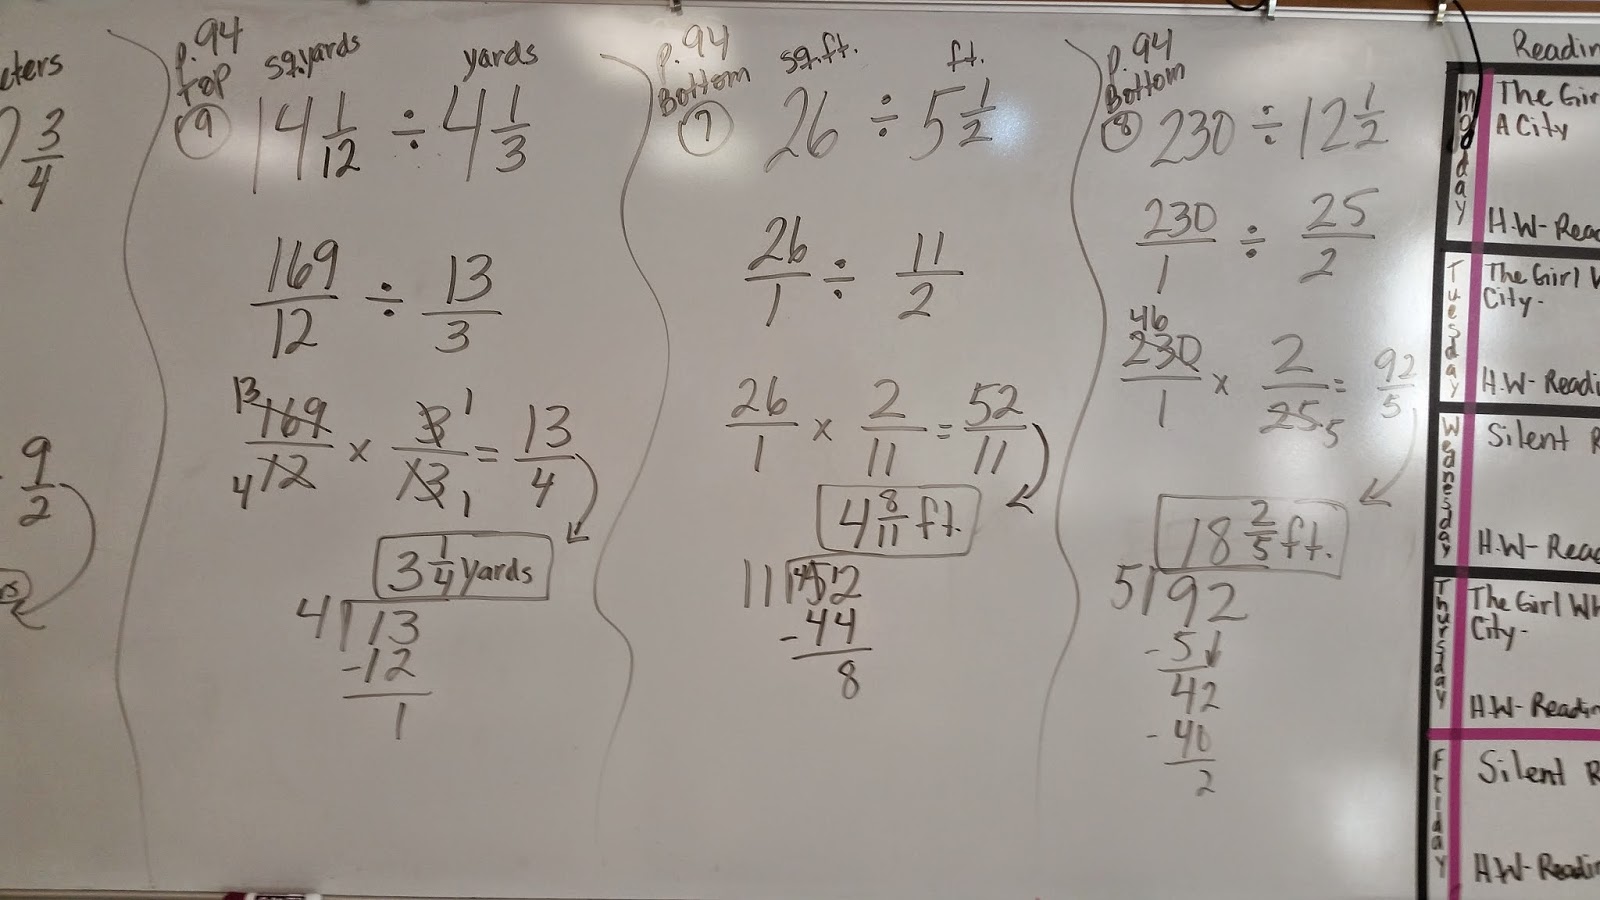 cters
3/4
9/2
p.94
top
sq.yards yards
9 14 1/12 ÷ 4 1/3
169/12 ÷ 13/3
13 1
169/12 × 3/13 = 13/4
4 1
3 1/4 yards
4 13
-12
1
p.94
Bottom
sq.ft. ft.
7 26 ÷ 5 1/2
26/1 ÷ 11/2
26/1 × 2/11 = 52/11
4 8/11 ft.
11 52
-44
8
p.94
Bottom
8 230 ÷ 12 1/2
230/1 ÷ 25/2
46
230/1 × 2/25 = 92/5
5
18 2/5 ft.
5 92
-5↓
42
-40
2
Readin
Monday
The Gir
A City
H.W- Read
Tuesday
The Girl W
City-
H.W- Readi
Wednesday
Silent R
H.W- Rea
Thursday
The Girl Wh
City-
H.W- Readin
Friday
Silent R
H.W- Readin